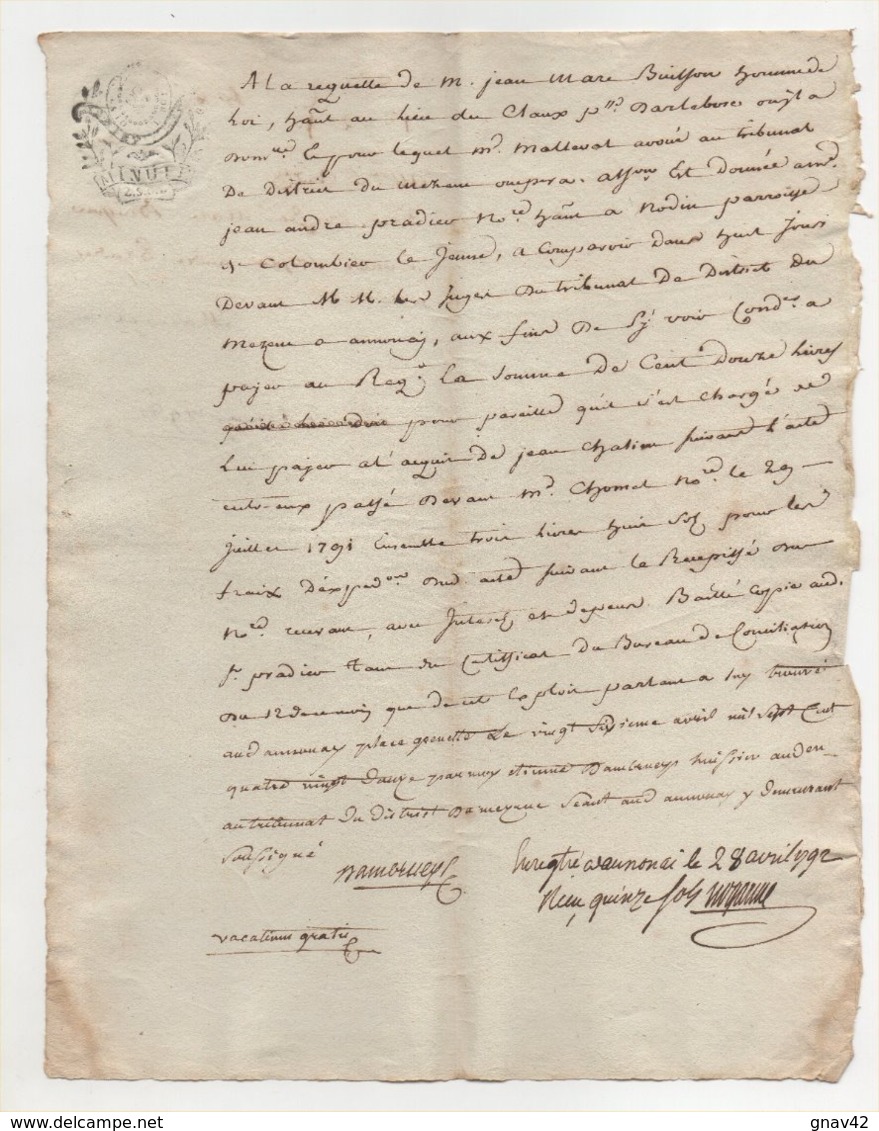 MINUTE
A la requette de m. jean Marc Buisson homme de
Loi, hãnt au lieu du Claux p.sse Darlebosc ou il a
Dom.le & pour lequel m.e Mallevat avoué au tribunal
De District du mezenc occupera. assõn Est donnée a m.e
jean andré pradier No.re hãnt a Rodin parroisse
de Colombier le jeune, a Comparoir dans huit jours
Devant M M. les juges du tribunal De District du
Mezenc a annonay, aux fins De s'y voir Cond.er a
payer au Req.t La somme De Cent Douze Livres
pour pareille qu'il s'est Chargé de
Lui payer a l'acquit De jean Chalien suivant l'acte
entr-eux passé Devant m.e Chomel No.re le 29
juillet 1791 Ensemble trois Livres huit sols pour les
fraix D'expedi.on dud. acte suivant le Recepissé du
No.re recevant, avec Interets et depens. Baillé Copie aud.
S.r pradier tant du Certifficat du Bureau de Conciliation
Du 12 du Courant que de cet Exploit parlant a luy trouvé
aud annonay place grenette Le vingt sixieme avril mil sept Cent
quatre vingt douze par moy etienne Dambrueys huissier audien
au tribunal du District du mezenc Seant aud annonay y demeurant
soussigné
Dambrueys
Enregtré a annonai le 28 avril 1792
Recu quinze sols
vacations gratis
gnav42